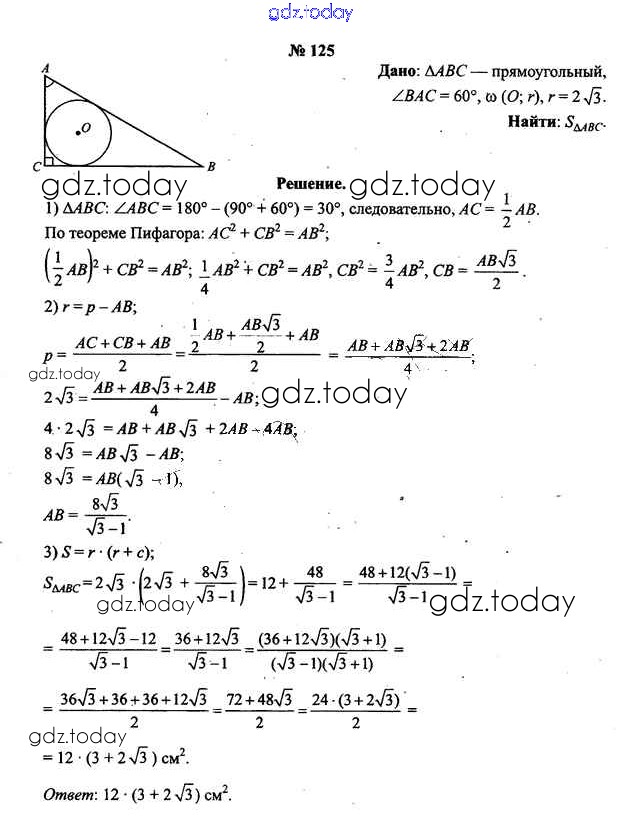 gdz.today
№ 125
Дано: ΔABC — прямоугольный,
∠BAC = 60°, ω (O; r), r = 2√3.
Найти: S_ΔABC.
A
O
C
B
gdz.today gdz.today
Решение.
1) ΔABC: ∠ABC = 180° – (90° + 60°) = 30°, следовательно, AC = 1/2 AB.
По теореме Пифагора: AC² + CB² = AB²;
(1/2 AB)² + CB² = AB²; 1/4 AB² + CB² = AB², CB² = 3/4 AB², CB = AB√3/2 .
2) r = p – AB;
p = (AC + CB + AB)/2 = (1/2 AB + AB√3/2 + AB)/2 = (AB + AB√3 + 2AB)/4 ;
gdz.today
2√3 = (AB + AB√3 + 2AB)/4 – AB;
gdz.today
4 · 2√3 = AB + AB√3 + 2AB – 4AB,
8√3 = AB√3 – AB;
8√3 = AB(√3 – 1),
AB = 8√3/(√3 – 1).
3) S = r · (r + c);
S_ΔABC = 2√3 · (2√3 + 8√3/(√3 – 1)) = 12 + 48/(√3 – 1) = (48 + 12(√3 – 1))/(√3 – 1) =
gdz.today gdz.today
= (48 + 12√3 – 12)/(√3 – 1) = (36 + 12√3)/(√3 – 1) = (36 + 12√3)(√3 + 1)/((√3 – 1)(√3 + 1)) =
= (36√3 + 36 + 36 + 12√3)/2 = (72 + 48√3)/2 = 24 · (3 + 2√3)/2 =
gdz.today
= 12 · (3 + 2√3) см².
Ответ: 12 · (3 + 2√3) см².